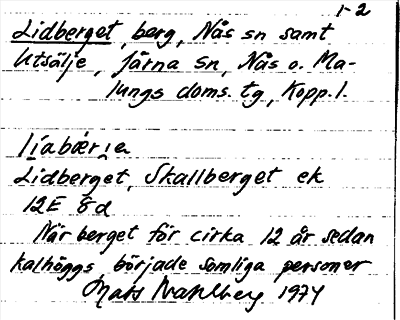 1-2
Lidberget, berg, Nås sn samt
Utsälje, Järna sn, Nås o. Ma-
lungs doms. tg, Kopp. l.
Lidberget, Skallberget ek
12E 8d
När berget för cirka 12 år sedan
kalhöggs, började somliga personer
Mats Wahlberg 1974